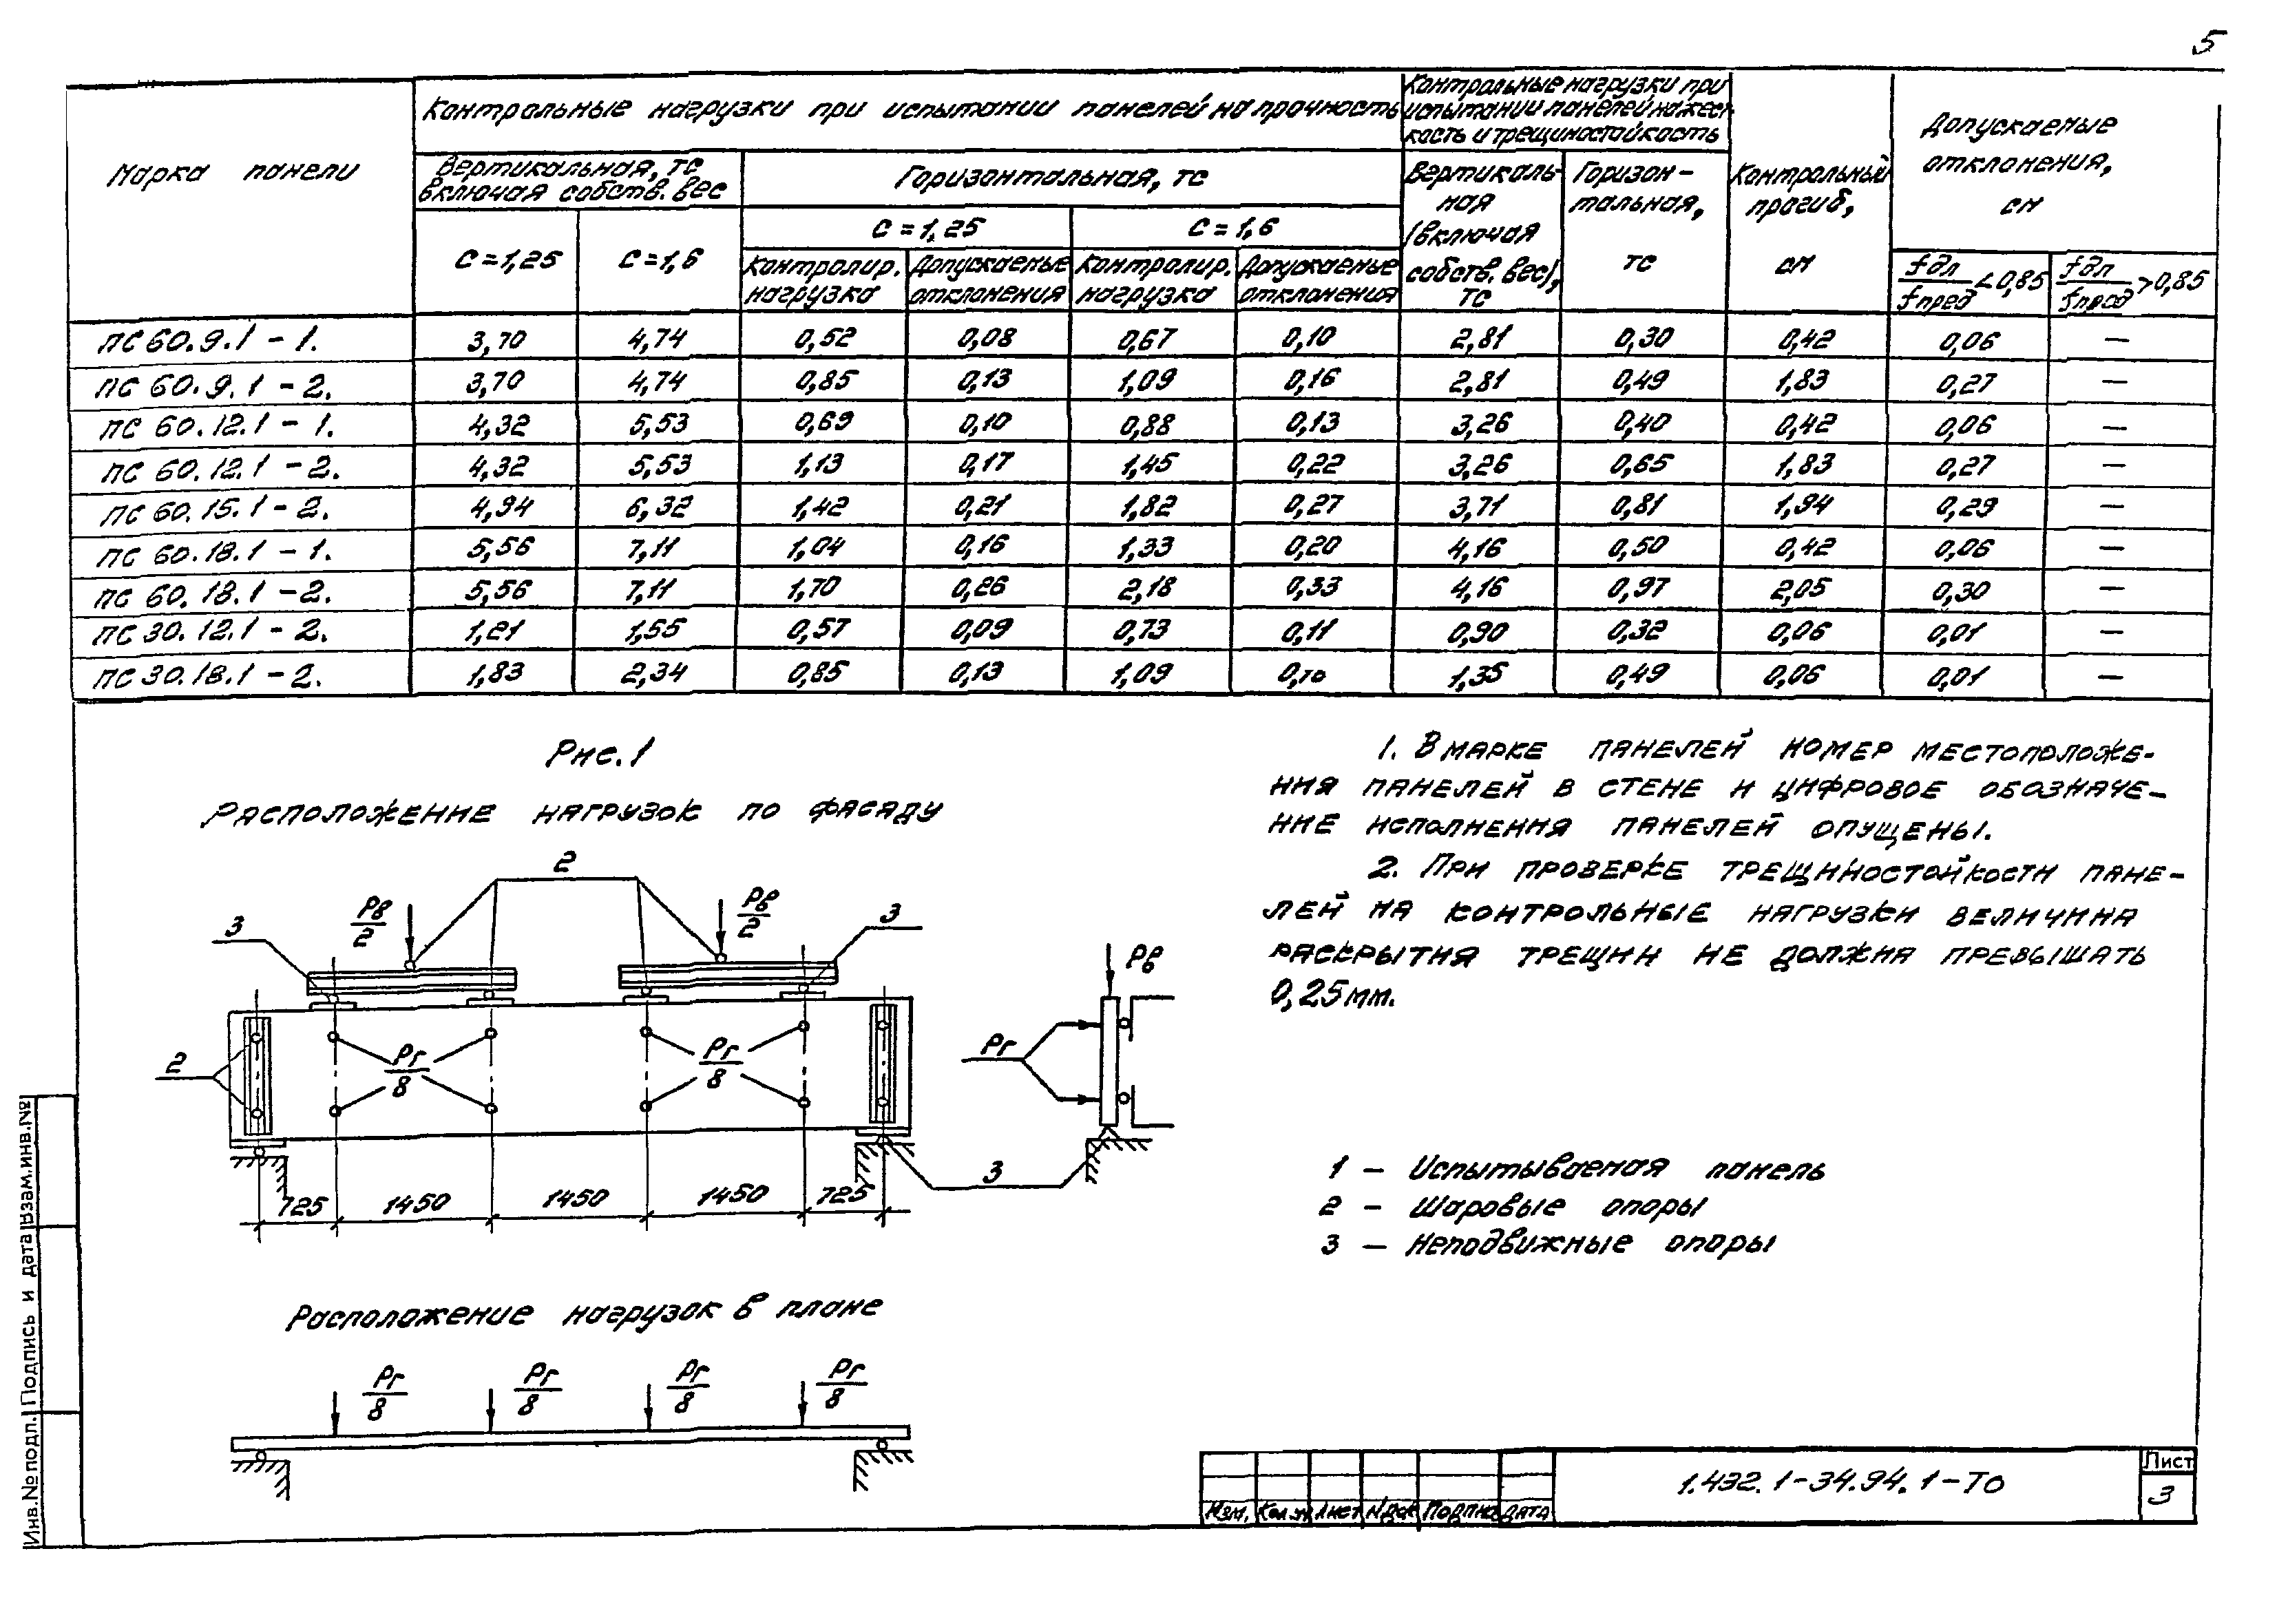 5
Марка панели
Контрольные нагрузки при испытании панелей на прочность
Контрольные нагрузки при
испытании панелей на жест-
кость и трещиностойкость
Контрольный
прогиб,
см
Допускаемые
отклонения,
см
Вертикальная, тс
включая собств. вес
Горизонтальная, тс
Вертикаль-
ная
(включая
собств. вес),
тс
Горизон-
тальная,
тс
С=1,25 С=1,6
С=1,25 С=1,6
Контролир. нагрузка Допускаемые отклонения Контролир. нагрузка Допускаемые отклонения
fдл/fпред<0,85 fдл/fпред>0,85
ПС 60.9.1-1. 3,70 4,74 0,52 0,08 0,67 0,10 2,81 0,30 0,42 0,06 —
ПС 60.9.1-2. 3,70 4,74 0,85 0,13 1,09 0,16 2,81 0,49 1,83 0,27 —
ПС 60.12.1-1. 4,32 5,53 0,69 0,10 0,88 0,13 3,26 0,40 0,42 0,06 —
ПС 60.12.1-2. 4,32 5,53 1,13 0,17 1,45 0,22 3,26 0,65 1,83 0,27 —
ПС 60.15.1-2. 4,94 6,32 1,42 0,21 1,82 0,27 3,71 0,81 1,94 0,29 —
ПС 60.18.1-1. 5,56 7,11 1,04 0,16 1,33 0,20 4,16 0,50 0,42 0,06 —
ПС 60.18.1-2. 5,56 7,11 1,70 0,26 2,18 0,33 4,16 0,97 2,05 0,30 —
ПС 30.12.1-2. 1,21 1,55 0,57 0,09 0,73 0,11 0,90 0,32 0,06 0,01 —
ПС 30.18.1-2. 1,83 2,34 0,85 0,13 1,09 1,35 0,49 0,06 0,01 —
Рис. 1
Расположение нагрузок по фасаду
2
3 Рв/2 Рв/2 3
2 Рг/8 Рг/8
3
725 1450 1450 1450 725
Рв
Рг
Расположение нагрузок в плане
Рг/8 Рг/8 Рг/8 Рг/8
1. В марке панелей номер местоположе-
ния панелей в стене и цифровое обозначе-
ние исполнения панелей опущены.
2. При проверке трещиностойкости пане-
лей на контрольные нагрузки величина
раскрытия трещин не должна превышать
0,25 мм.
1 — Испытываемая панель
2 — Шаровые опоры
3 — Неподвижные опоры
Изм. Кол.уч Лист №док Подпись Дата
1.432.1-34.94.1-ТО
Лист
3
Инв.№подл. Подпись и дата Взам.инв.№